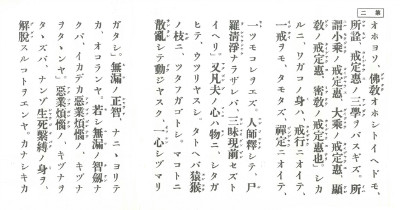 第二
オホヨソ、佛敎オホシトイヘドモ、
所詮、戒定惠ノ三學ヲバスギズ。所
謂小乘ノ戒定惠、大乘ノ戒定惠、顯
敎ノ戒定惠、密敎ノ戒定惠也。シカ
ルニ、ワガコノ身ハ、戒行ニオイテ、
一戒ヲモ、タモタズ、禪定ニオイテ、
一ツモコレヲエズ。人師釋シテ、尸
羅清淨ナラザレバ、三昧現前セズト
イヘリ。又凡夫ノ心ハ物ニ、シタガ
ヒテ、ウツリヤスシ。タトヘバ猿猴
ノ枝ニ、ツタフガゴトシ。マコトニ
散亂シテ動ジヤスク、一心シヅマリ
ガタシ。無漏ノ正智、ナニヽヨリテ
カ、オコランヤ。若シ無漏ノ智劔ナ
クバ、イカデカ惡業煩惱ノ、キヅナ
ヲタヽンヤ。惡業煩惱ノ、キヅナヲ
タヽズバ、ナンゾ生死繫縛ノ身ヲ、
解脫スルコトヲエンヤ。カナシキカ